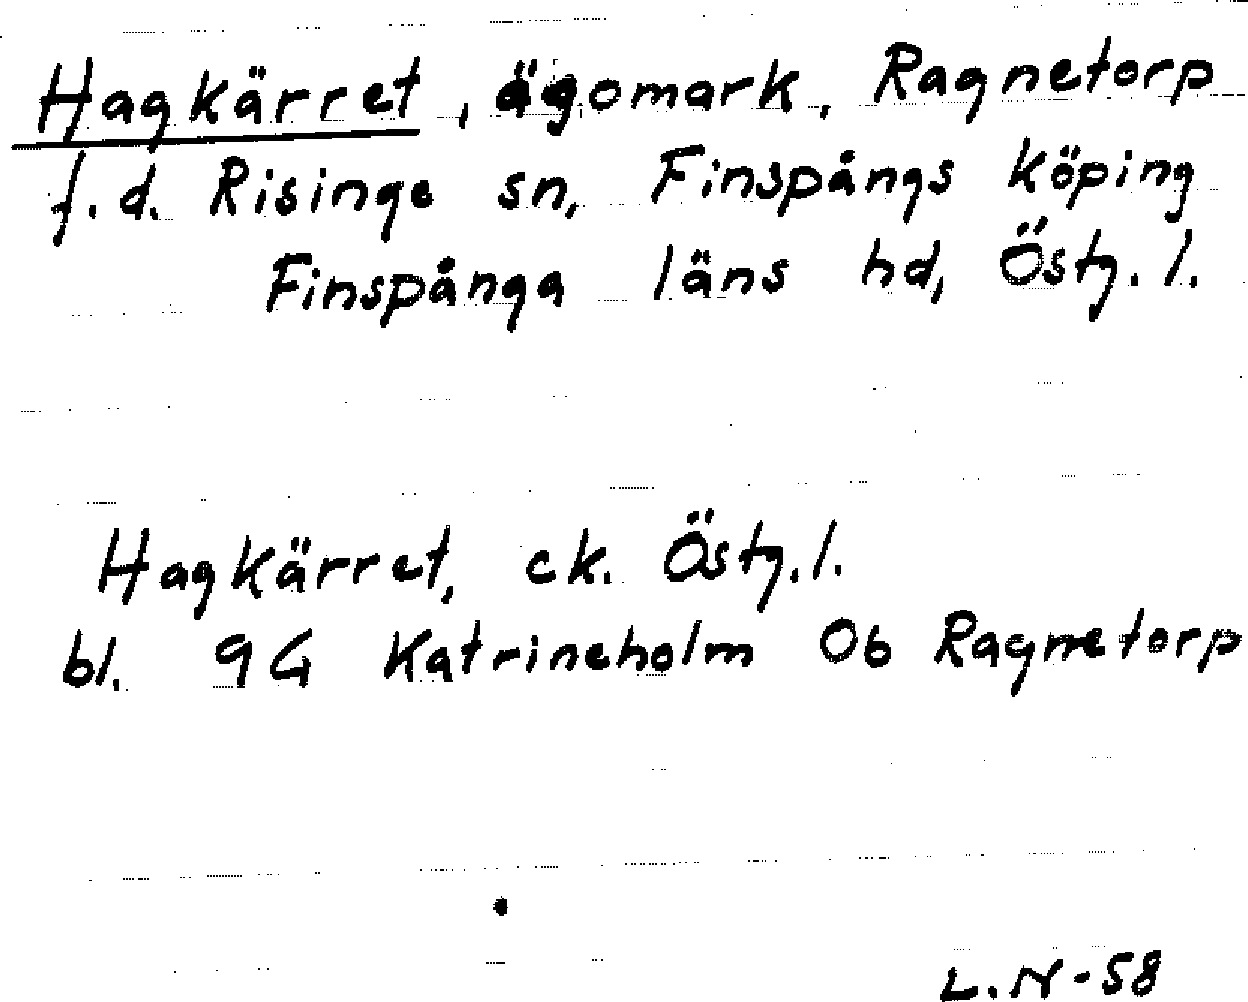 Hagkärret, ägomark, Ragnetorp
f.d. Risinge sn, Finspångs köping
Finspånga läns hd, Östg.l.
Hagkärret, ek. Östg.l.
bl. 9G Katrineholm Ob Ragnetorp
L.N-58